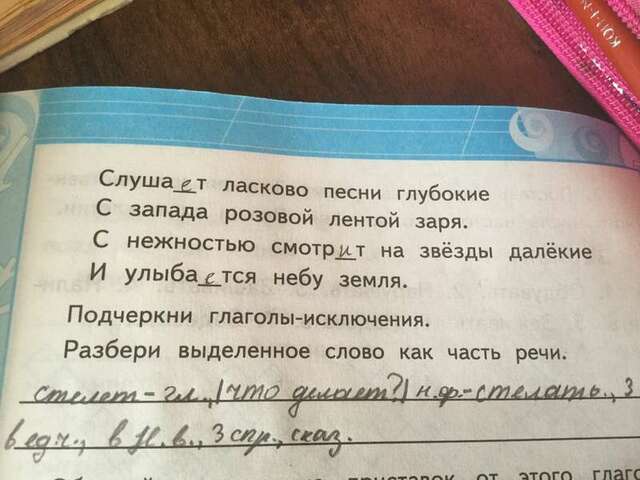 Слушает ласково песни глубокие
С запада розовой лентой заря.
С нежностью смотрит на звёзды далёкие
И улыбается небу земля.
Подчеркни глаголы-исключения.
Разбери выделенное слово как часть речи.
стелет - гл., (что делает?) н.ф.- стелать., 3
в ед.ч., в Н.в., 3 спр., сказ.
приставок от этого